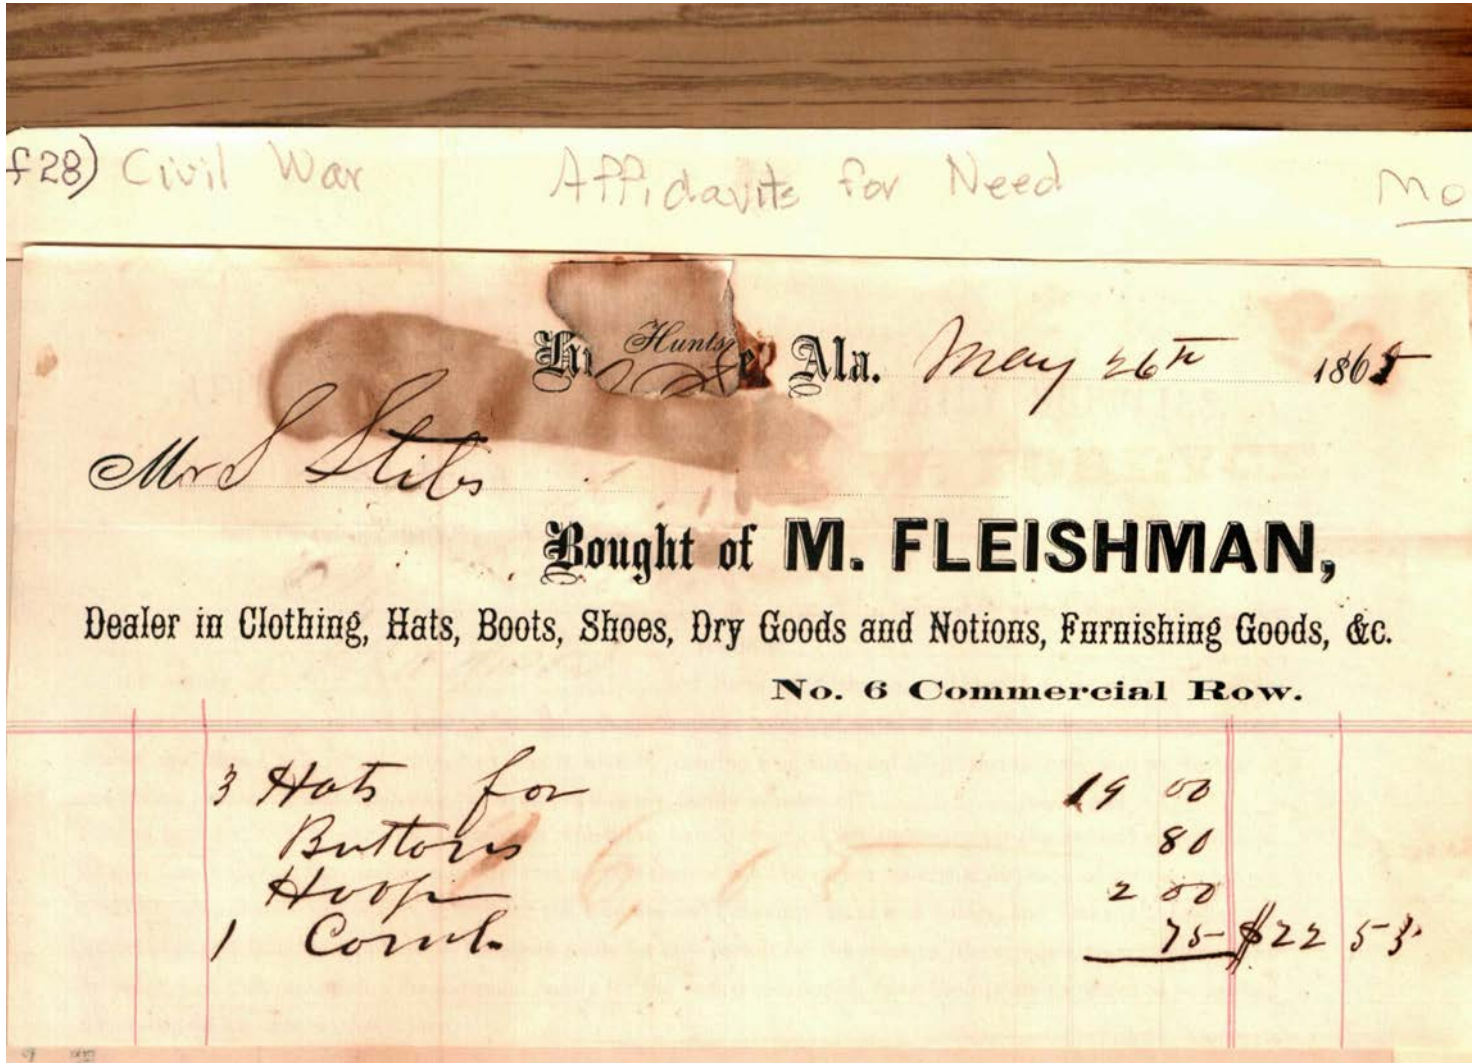 f28) Civil War Affidavits for Need Mo
Hunts Ala. May 26th 1865
Mr S Stibs
Bought of M. FLEISHMAN,
Dealer in Clothing, Hats, Boots, Shoes, Dry Goods and Notions, Furnishing Goods, &c.
No. 6 Commercial Row.
3 Hats for 19 00
Buttons 80
Hoop 2 00
1 Comb 75 $22 55